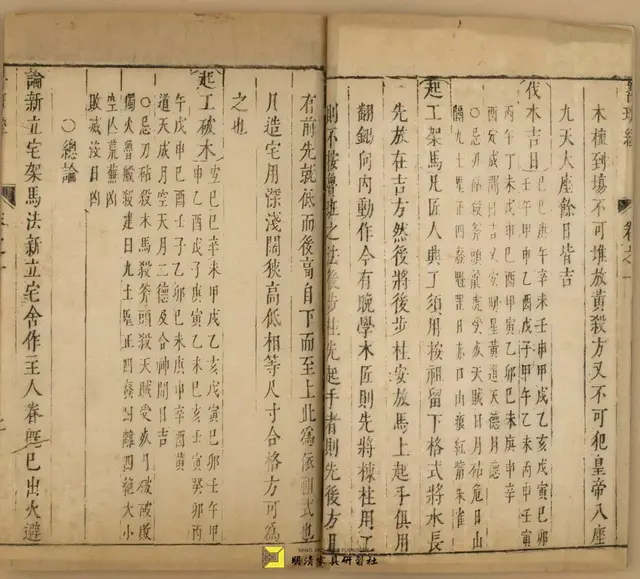 木植到塲不可堆放黃殺方又不可犯皇帝八座
九天大座餘日皆吉
伐木吉日 己巳庚午辛未壬申甲戌乙亥戊寅己卯
壬午甲申乙酉戊子甲午乙未丙申壬寅
丙午丁未戊申己酉甲寅乙卯己未庚申辛
酉定成開日吉又宜明星黃道天德月德
○忌刀砧殺斧頭龍虎受死天賊日月砧危日山
隔九土鬼正四廢魁罡日赤口山痕紅觜朱雀
起工架馬凡匠人興工須用按祖留下格式將水長
先放在吉方然後將後步柱安放馬上起手俱用
翻鋤向內動作今有晚學木匠則先將棟柱用工
則不按魯班之法後步柱先起手者則先後方且
有前先就低而後高自下而至上此為依祖式也
凡造宅用深淺闊狹高低相等尺寸合格方可為
之也
起工破木 宜己巳辛未甲戌乙亥戊寅己卯壬午甲
申乙酉戊子庚寅乙未己亥壬寅癸卯丙
午戊申己酉壬子乙卯己未庚申辛酉黃
道天成月空天月二德及合神開日吉
○忌刀砧殺木馬殺斧頭殺天賊受死月破破敗
獨火魯般殺建日九土鬼正四廢四離四絕大小
空亡荒蕪凶
敗滅沒日凶
○總論
論新立宅架馬法新立宅舍作主人眷既已出火避
明清家具研習社